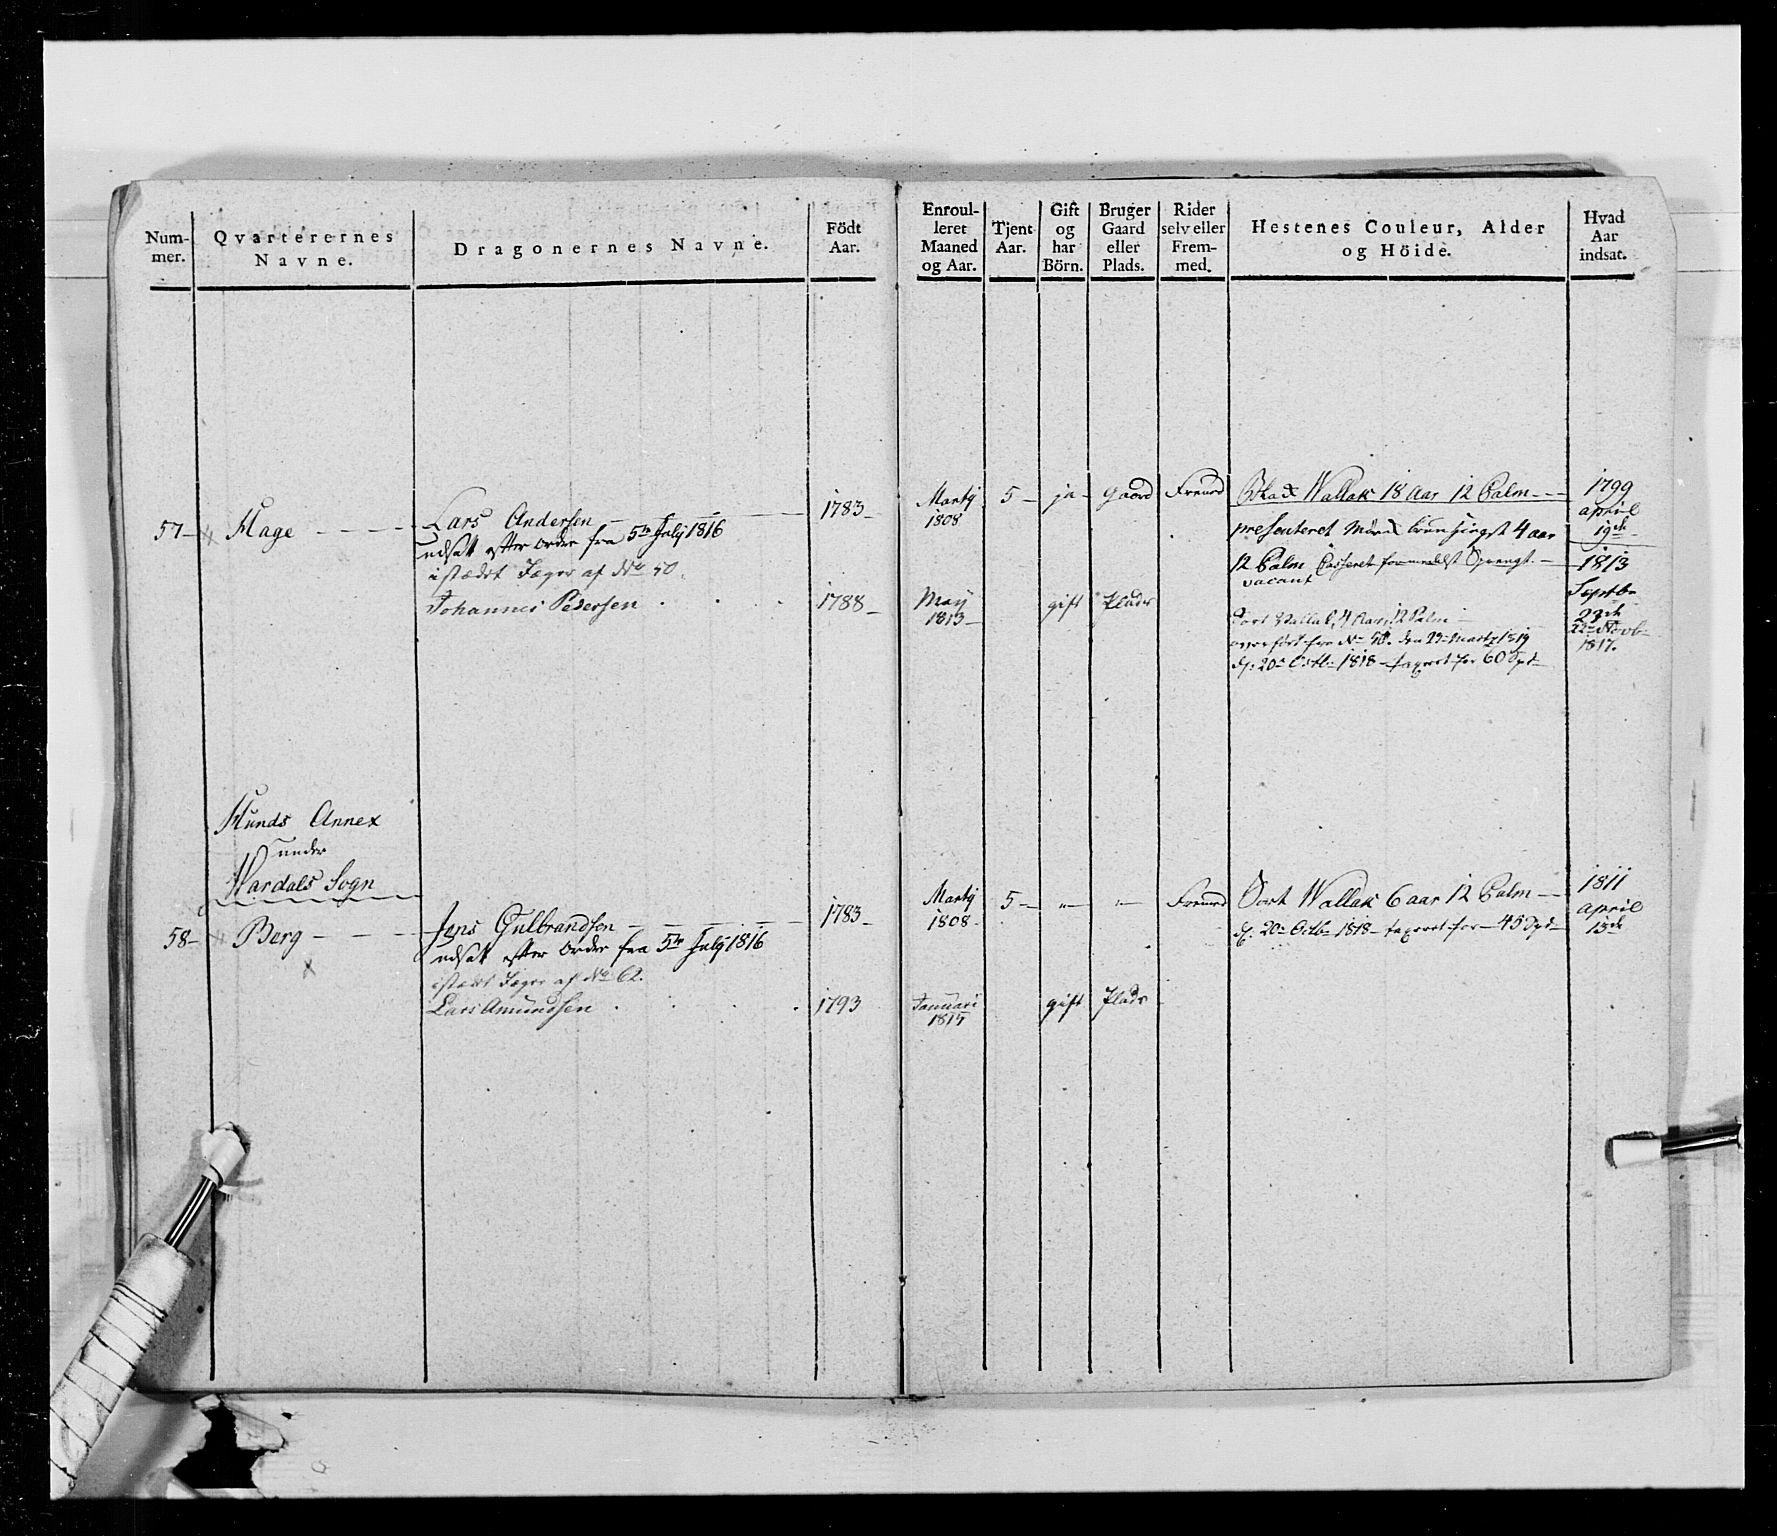 Num-
mer.
Qvarterernes
Navne.
Dragonernes Navne.
Födt
Aar.
Enroul-
leret
Maaned
og Aar.
Tjent
Aar.
Gift
og
har
Börn.
Bruger
Gaard
eller
Plads.
Rider
selv eller
Frem-
med.
Hestenes Couleur, Alder
og Höide.
Hvad
Aar
indsat.
57 Hage
Lars Andersen
udsat efter ordre fra 5te July 1816
istædet Jæger af No 50.
Johannes Pedersen
1783
1788
Martij
1808
5
ja
Gaard
Fremd
Wallak 18 Aar 12 Palm
presenteret Mörk brun hingst 4 aar
12 Palm Casseret formedelst Sprengt.
vacant
May
1813
gift
Plads
Sort Vallak, 4 Aar, 12 Palm
overfört fra No 50. den 23 Martz 1819
d. 20 Octb 1818 taxeret for 60 Spd
1799
April
19de
1813
Septb
29de
22de Novb
1817.
Hunds Annex
under
Wardals Sogn
58 Berg
Jens Gulbrandsen
udsat efter ordre fra 5te July 1816
istædet Jæger af No 62.
Lars Amundsen
1783
1793
Martij
1808
5
"
"
Fremd
Sort Wallak 6 aar 12 Palm
d. 20 Octb 1818 taxeret for 45 Spd
1811
April
13de
Januari
1815
gift
Plads